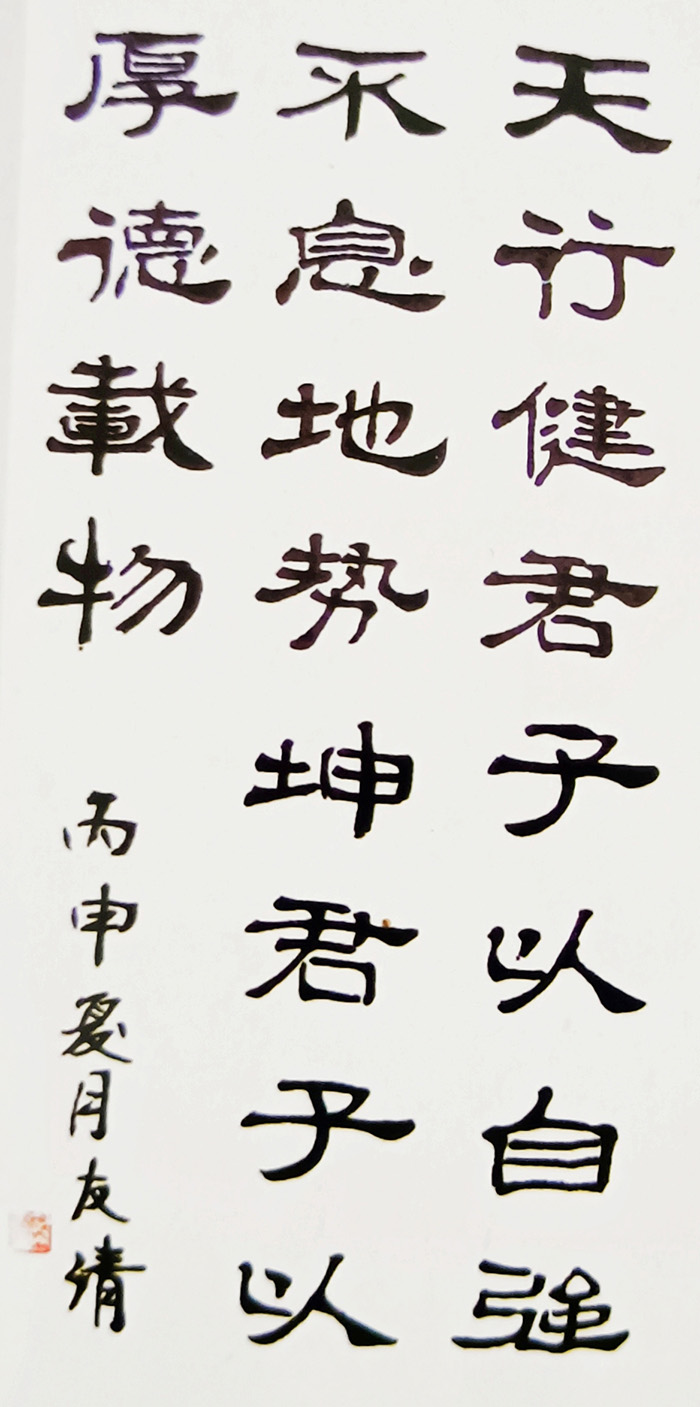 天行健君子以自强
不息地势坤君子以
厚德載物
丙申夏月友倩